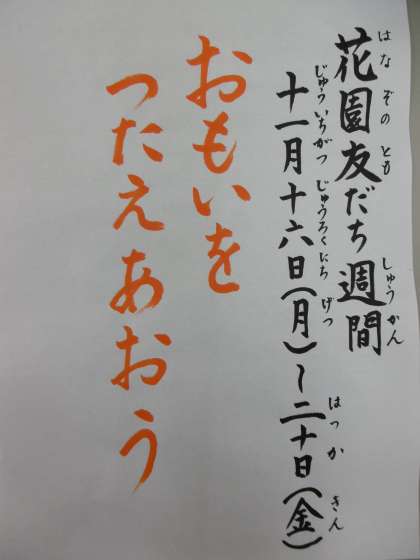 花園友だち週間
はなぞのともしゅうかん
十一月十六日(月)~二十日(金)
じゅういちがつじゅうろくにちげつはつかきん
おもいを
つたえあおう